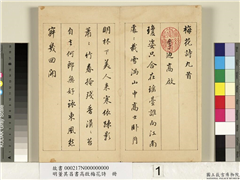 梅花詩九首
高啟
瓊姿只合在瑤臺誰向江南
處處栽雪滿山中高士臥月
明林下美人來寒依疎影
蕭蕭竹春掩殘香漠漠苔
自去何郎無好詠東風愁
寂幾回開
故書000217N000000000
明董其昌書高啟梅花詩 冊
1